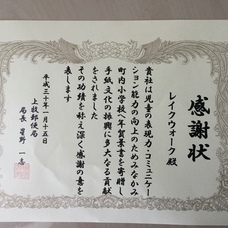 感謝状
レイクウォーク 殿
貴社は児童の表現力・コミュニケー
ション能力の向上のためみなかみ
町内小学校へ年賀葉書を寄贈し
手紙文化の振興に多大なる貢献
をされました
その功績を称え深く感謝の意を
表します
平成三十年一月十五日
上牧郵便局
局長 星野 一志